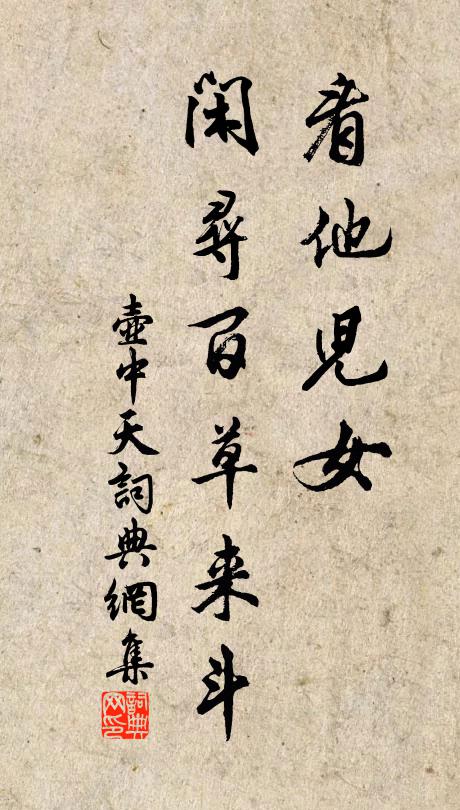 看他兒女
閑尋百草来斗
壺中天詞典網集
詞典
网印